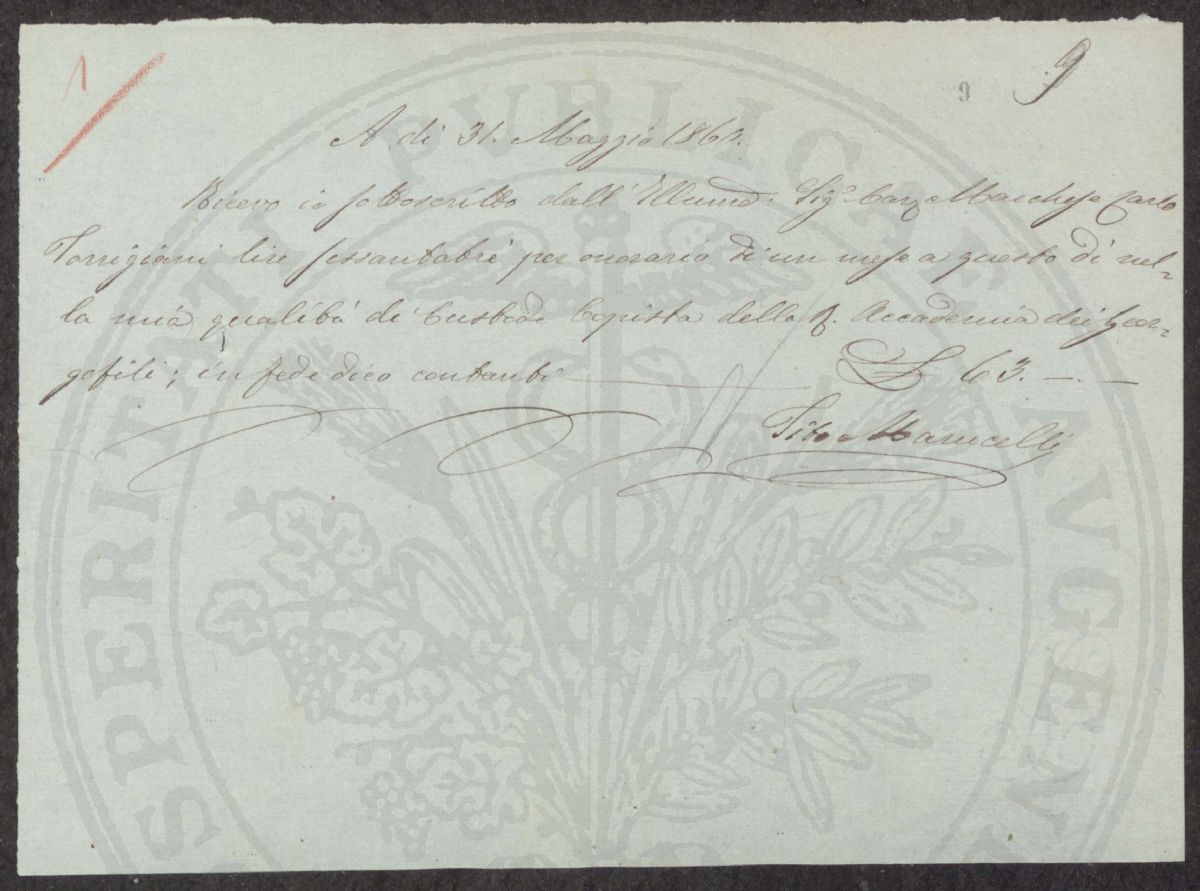 1
9 9
A dì 31. Maggio 186
Ricevo io sottoscritto dall' Illumo. Sigr. Cav. Marchese Carlo
Torrigiani lire sessantatré per onorario di un mese a questo dì nel=
la mia qualità di Custode Copista della R. Accademia dei Geor=
gofili; in fede dico contanti £ 63. —.—
Tito Marucelli
PROSPERITATI PUBLICAE AUGEN